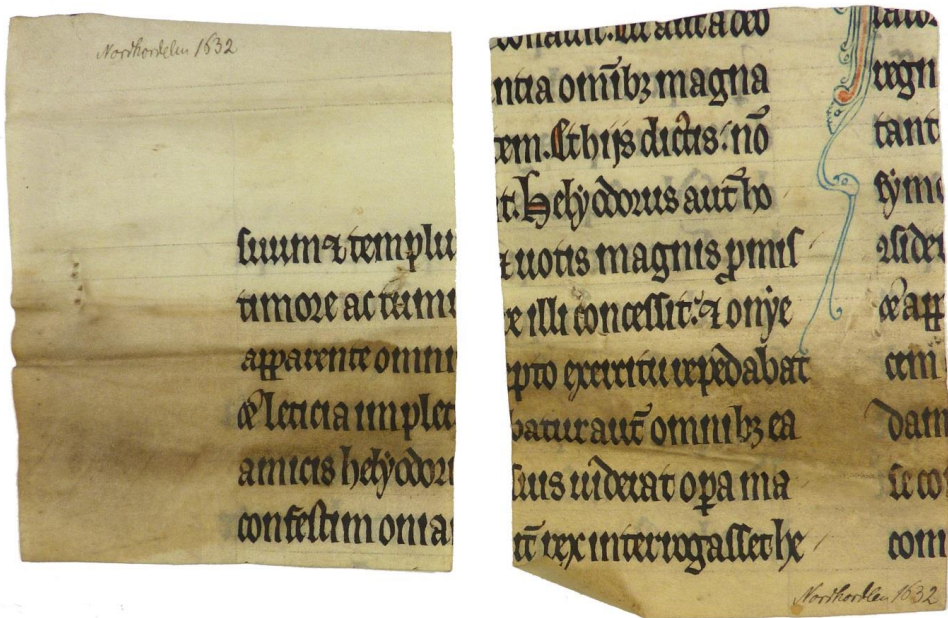 Nordhordlen 1632
suum ⁊ templu
timore ac tumu
apparente omni
ce leticia implet
amicis helyodori
confestim onia
ntia om̄ibꝫ magna
tem. Et hijs dictis: nō
t. Helyodorus aut̄ ho
⁊ uotis magnis ꝓmiſ
e illi concessit: ⁊ onye
epto exercitu repedabat
batur aut̄ omnibꝫ ea
suis uiderat oꝑa ma
t̄ rex interrogasset he
regn
tant
symo
cem
dam
se co
com
Nordhordlen 1632